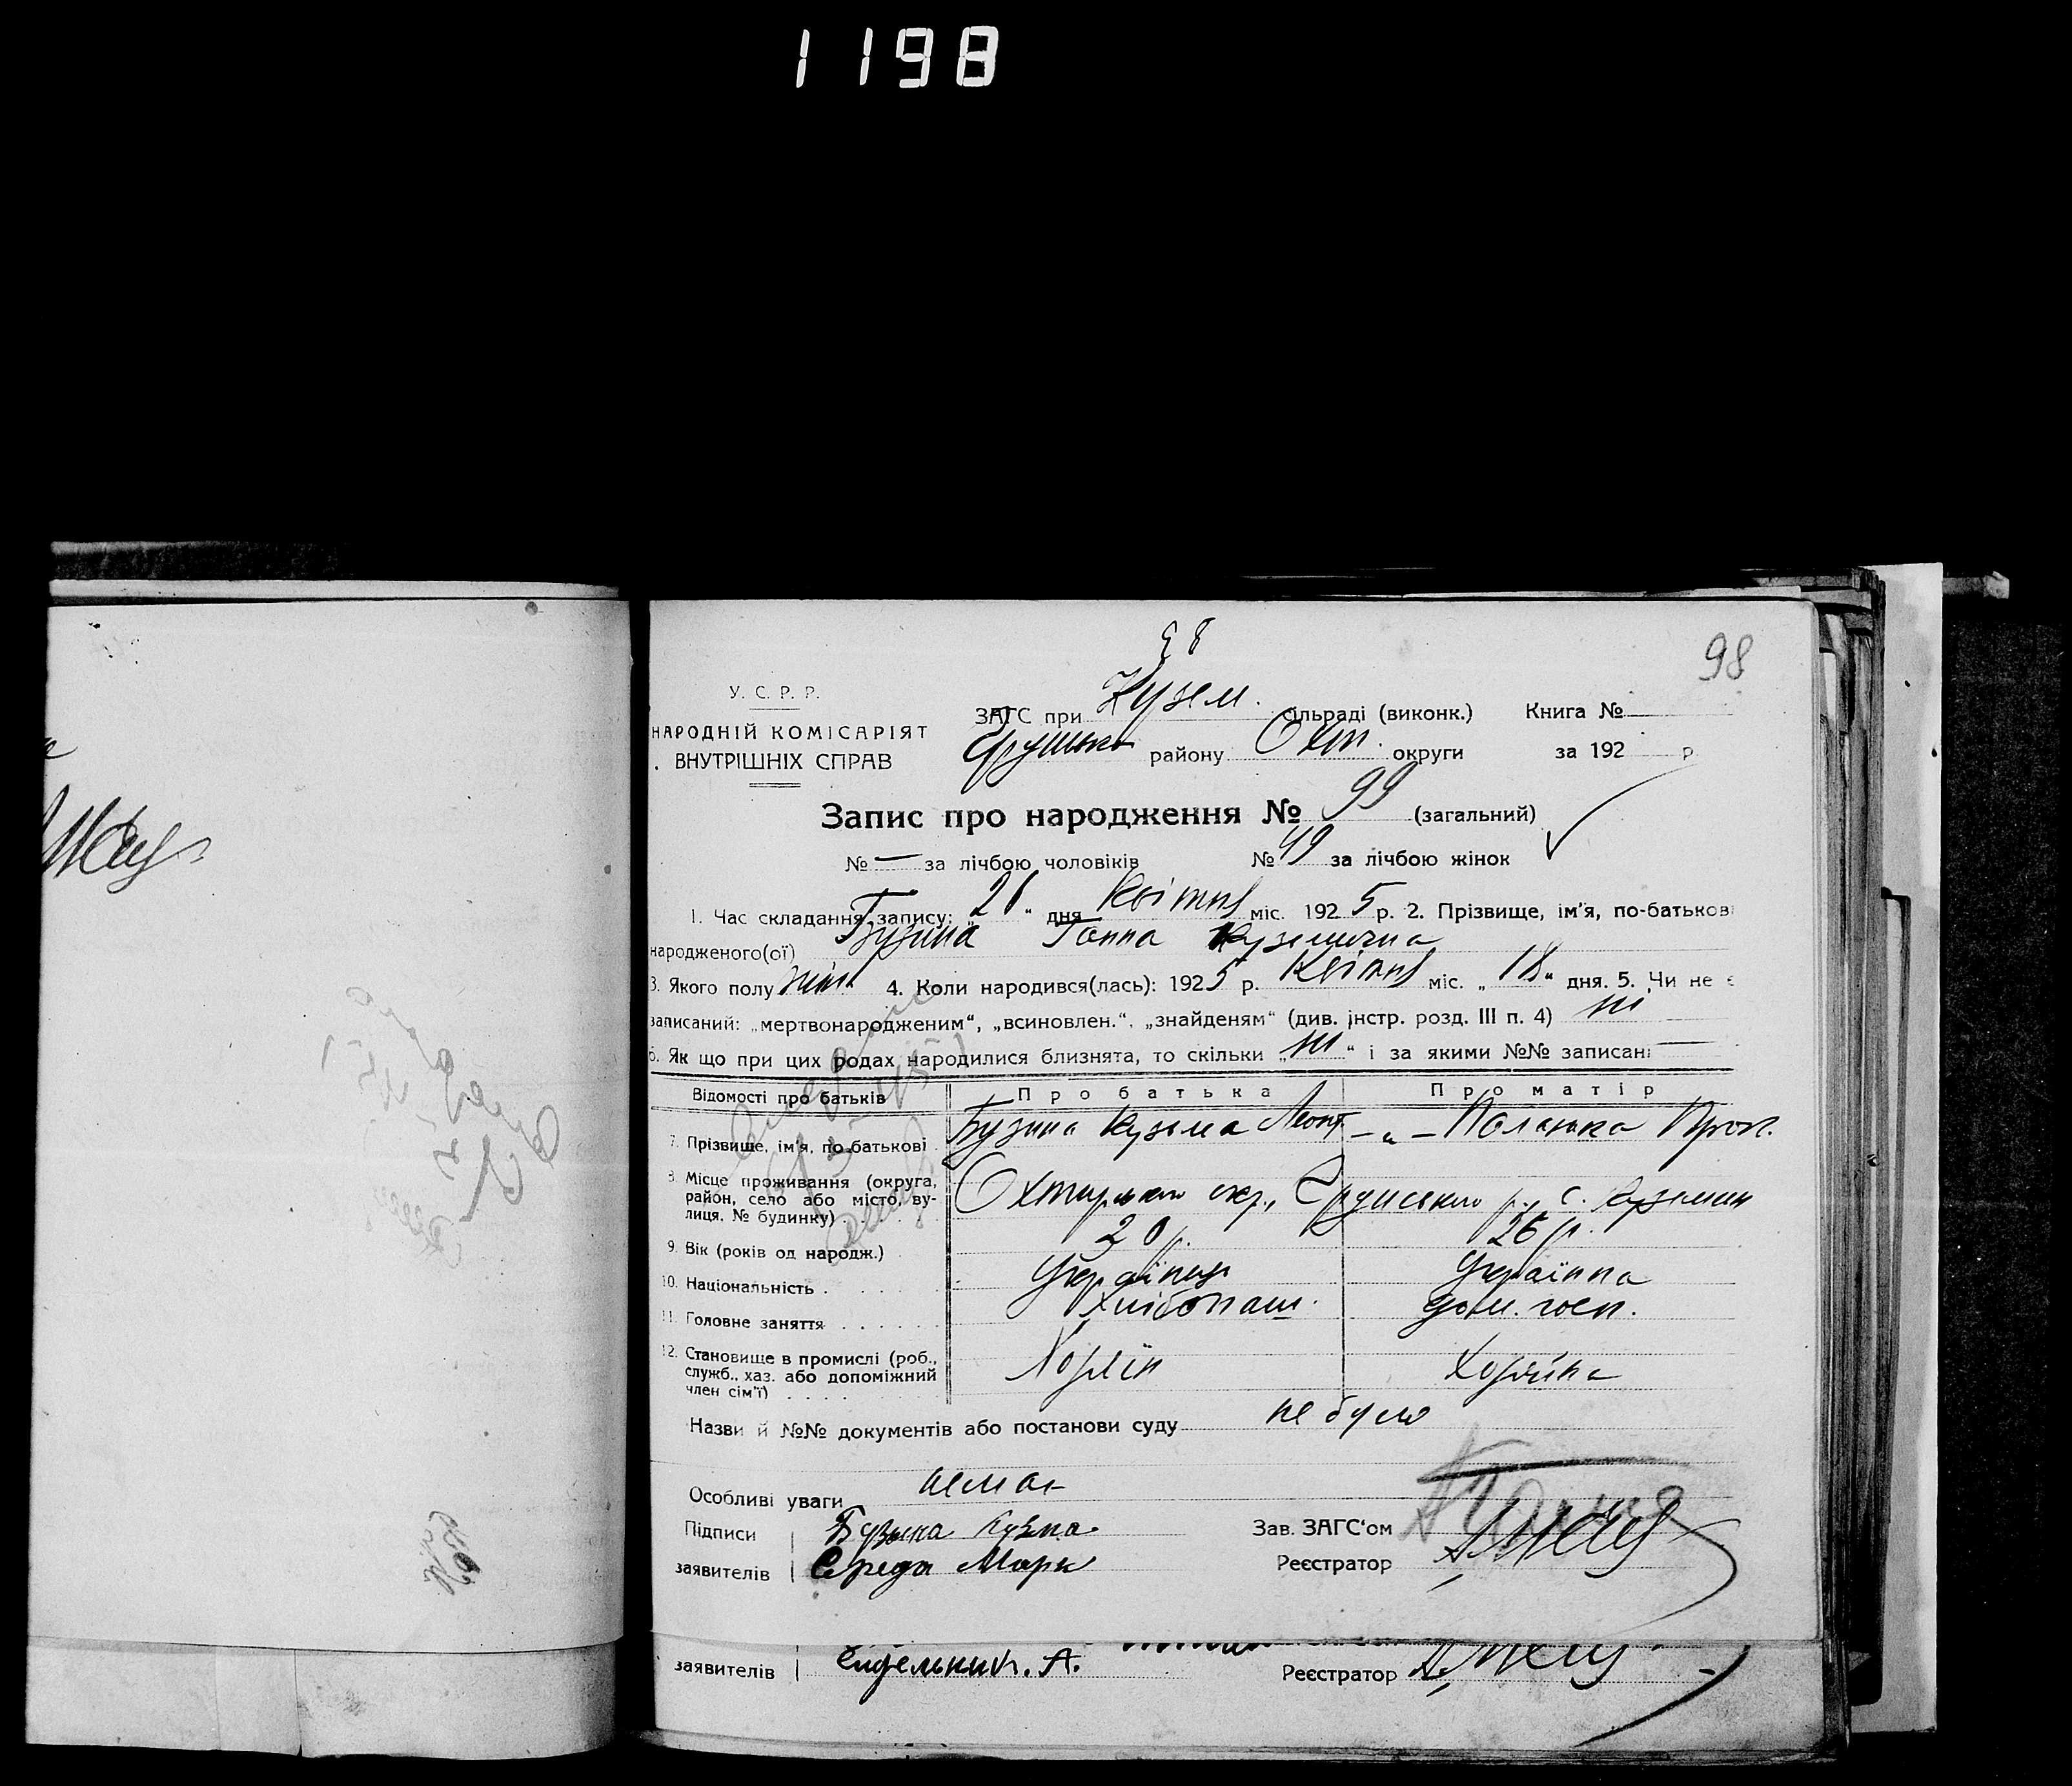 1198
98
У. С. Р. Р.
НАРОДНІЙ КОМІСАРІЯТ
ВНУТРІШНІХ СПРАВ
ЗАГС при Кузем. сільраді (виконк.) Книга №
району Охт. округи за 192 р
Запис про народження № 99 (загальний)
№ — за лічбою чоловіків № 49 за лічбою жінок
1. Час складання запису: „ “ дня Квітня міс. 1925 р. 2. Прізвище, ім'я, по-батькові
народженого(ої) Бузина Ганна Кузьмична
3. Якого полу жін. 4. Коли народився(лась): 1925 р. Квітня міс. „ 18 “ дня. 5. Чи не є
записаний: „мертвонародженим“, „всиновлен.“, „знайденям“ (див. інстр. розд. III п. 4) ні
6. Як що при цих родах народилися близнята, то скільки „ ні “ і за якими №№ записані —
Відомості про батьків Про батька Про матір
7. Прізвище, ім'я, по-батькові Бузина Кузьма Леонт — „ — Проп.
8. Місце проживання (округа,
район, село або місто, ву-
лиця, № будинку) Охтирського окр., Грунського р., с. Куземин
9. Вік (років од народж.) 20 р. 26 р.
10. Національність Українець Українка
11. Головне заняття Хлібопаш. дом. госп.
12. Становище в промислі (роб.,
служб., хаз. або допоміжний
член сім'ї) Хозяїн Хозяйка
Назви й №№ документів або постанови суду не було
Особливі уваги немає
Підписи Бузына Кузма Зав. ЗАГС‘ом
заявителів Середа Марк Реєстратор
заявителів А. Реєстратор